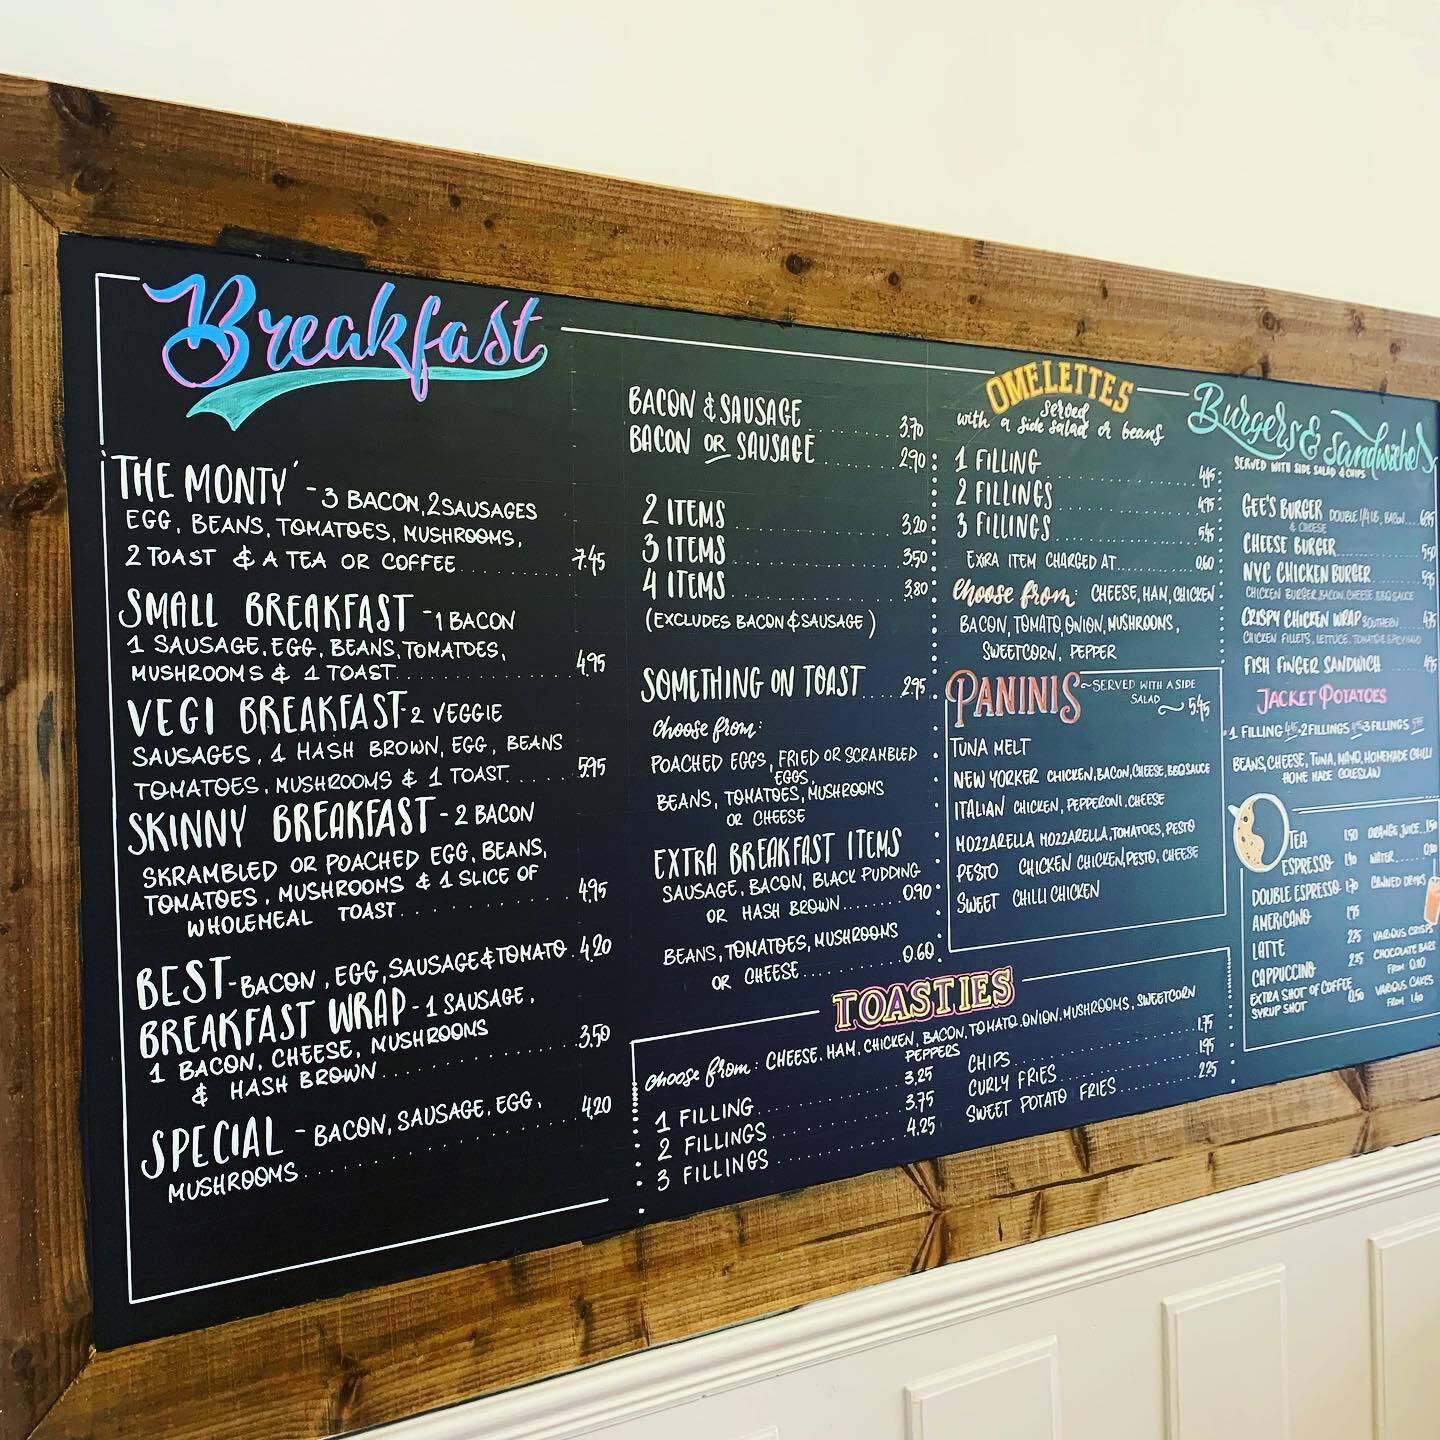 Breakfast
THE MONTY' - 3 BACON, 2 SAUSAGES
EGG, BEANS, TOMATOES, MUSHROOMS,
2 TOAST & A TEA OR COFFEE 7.45
SMALL BREAKFAST - 1 BACON
1 SAUSAGE, EGG, BEANS, TOMATOES,
MUSHROOMS & 1 TOAST 4.95
VEGI BREAKFAST - 2 VEGGIE
SAUSAGES, 1 HASH BROWN, EGG, BEANS
TOMATOES, MUSHROOMS & 1 TOAST 5.95
SKINNY BREAKFAST - 2 BACON
SKRAMBLED OR POACHED EGG, BEANS,
TOMATOES, MUSHROOMS & 1 SLICE OF
WHOLEMEAL TOAST 4.95
BEST - BACON, EGG, SAUSAGE & TOMATO 4.20
BREAKFAST WRAP - 1 SAUSAGE,
1 BACON, CHEESE, MUSHROOMS
& HASH BROWN 3.50
SPECIAL - BACON, SAUSAGE, EGG,
MUSHROOMS 4.20
BACON & SAUSAGE 3.70
BACON OR SAUSAGE 2.90
2 ITEMS 3.20
3 ITEMS 3.50
4 ITEMS 3.80
(EXCLUDES BACON & SAUSAGE)
SOMETHING ON TOAST 2.95
Choose from:
POACHED EGGS, FRIED OR SCRAMBLED
EGGS,
BEANS, TOMATOES, MUSHROOMS
OR CHEESE
EXTRA BREAKFAST ITEMS
SAUSAGE, BACON, BLACK PUDDING
OR HASH BROWN 0.90
BEANS, TOMATOES, MUSHROOMS
OR CHEESE 0.60
OMELETTES
served
with a side salad or beans
1 FILLING 4.45
2 FILLINGS 4.95
3 FILLINGS 5.45
EXTRA ITEM CHARGED AT 0.60
Choose from: CHEESE, HAM, CHICKEN
BACON, TOMATO, ONION, MUSHROOMS,
SWEETCORN, PEPPER
PANINIS ~ SERVED WITH A SIDE
SALAD 5.45
TUNA MELT
NEW YORKER CHICKEN, BACON, CHEESE, BBQ SAUCE
ITALIAN CHICKEN, PEPPERONI, CHEESE
MOZZARELLA MOZZARELLA, TOMATOES, PESTO
PESTO CHICKEN CHICKEN, PESTO, CHEESE
SWEET CHILLI CHICKEN
TOASTIES
choose from: CHEESE, HAM, CHICKEN, BACON, TOMATO, ONION, MUSHROOMS, SWEETCORN
PEPPERS
1 FILLING 3.25
2 FILLINGS 3.75
3 FILLINGS 4.25
CHIPS 1.75
CURLY FRIES 1.95
SWEET POTATO FRIES 2.25
Burgers & Sandwiches
SERVED WITH SIDE SALAD & CHIPS
GEE'S BURGER DOUBLE 1/4 LB, BACON 6.95
& CHEESE
CHEESE BURGER 5.50
NYC CHICKEN BURGER 5.95
CHICKEN BURGER, BACON, CHEESE, BBQ SAUCE
CRISPY CHICKEN WRAP SOUTHERN 4.75
CHICKEN FILLETS, LETTUCE, TOMATO &
FISH FINGER SANDWICH 4.95
JACKET POTATOES
1 FILLING 2 FILLINGS 3 FILLINGS
BEANS, CHEESE, TUNA, MAYO, HOMEMADE CHILLI
HOME MADE COLESLAW
TEA 1.50
ESPRESSO 1.40
DOUBLE ESPRESSO 1.70
AMERICANO 1.95
LATTE 2.25
CAPPUCCINO 2.25
EXTRA SHOT OF COFFEE
SYRUP SHOT 0.50
ORANGE JUICE 1.50
WATER
CANNED DRINKS
VARIOUS CRISPS
CHOCOLATE BARS
FROM 0.10
VARIOUS CAKES
FROM 1.40